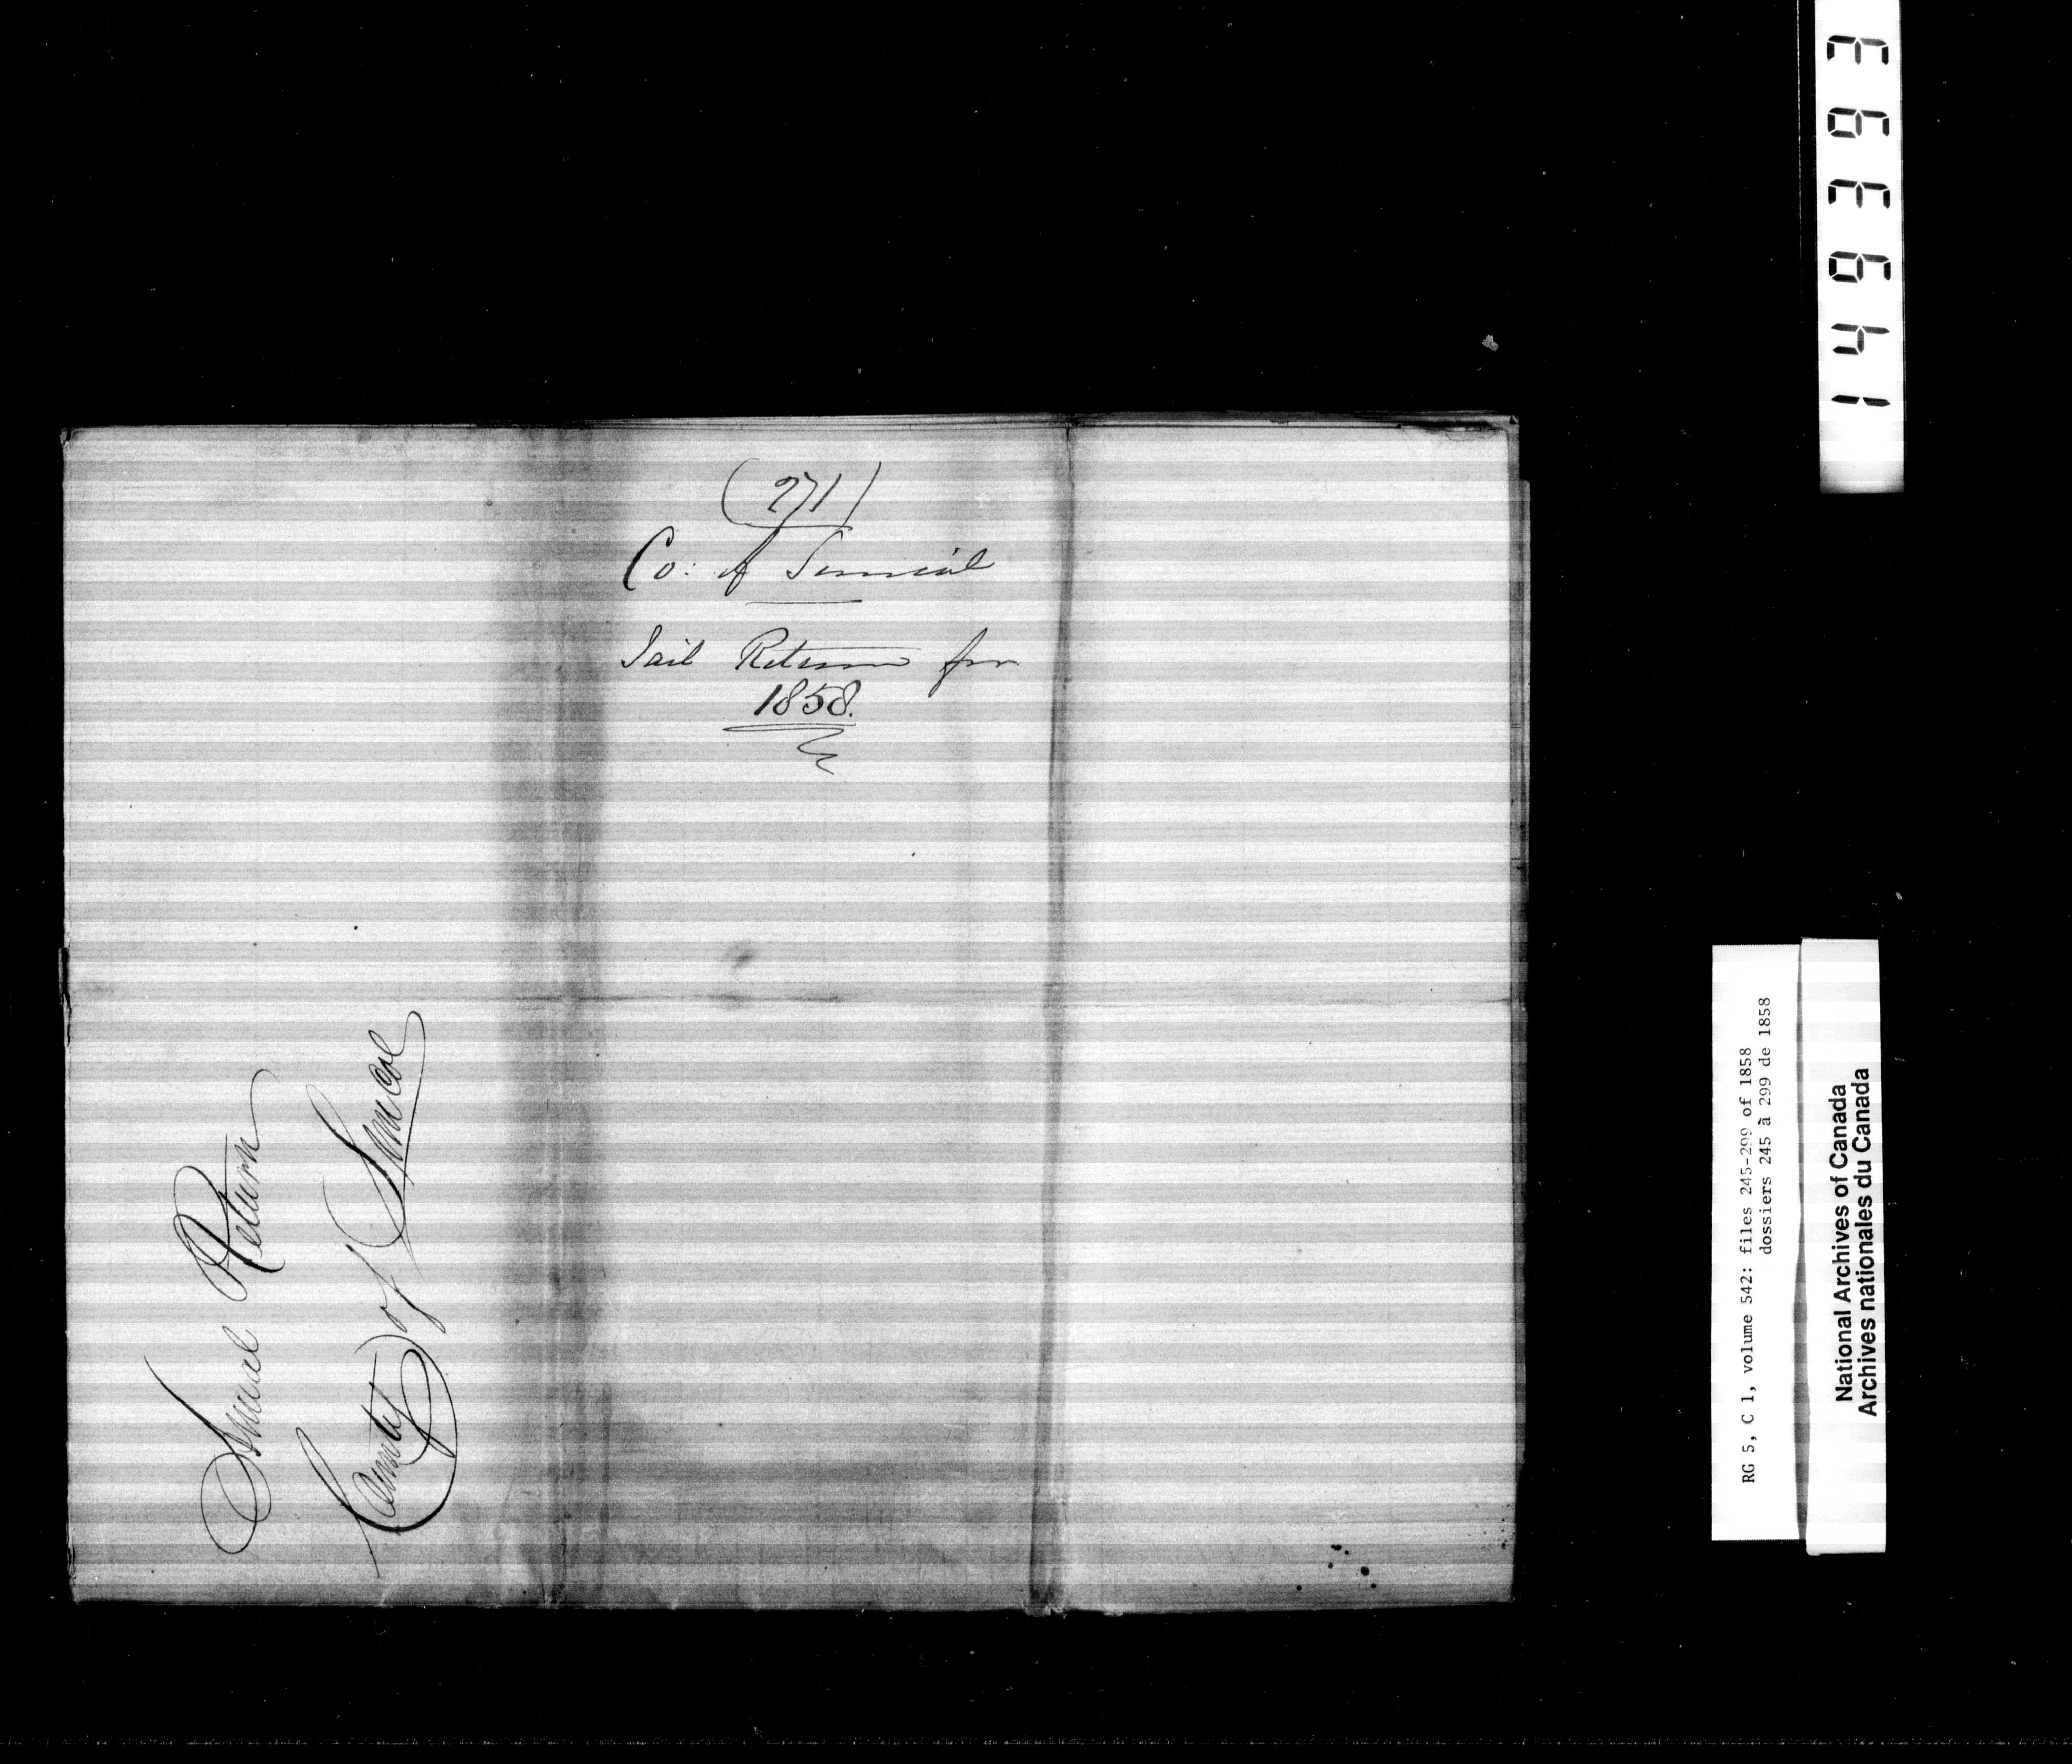 (271)
Co: of Simcoe
Jail Return for
1858.
Annual Return
County of Simcoe
149393
RG 5, C 1, volume 542: files 245-299 of 1858
dossiers 245 à 299 de 1858
National Archives of Canada
Archives nationales du Canada